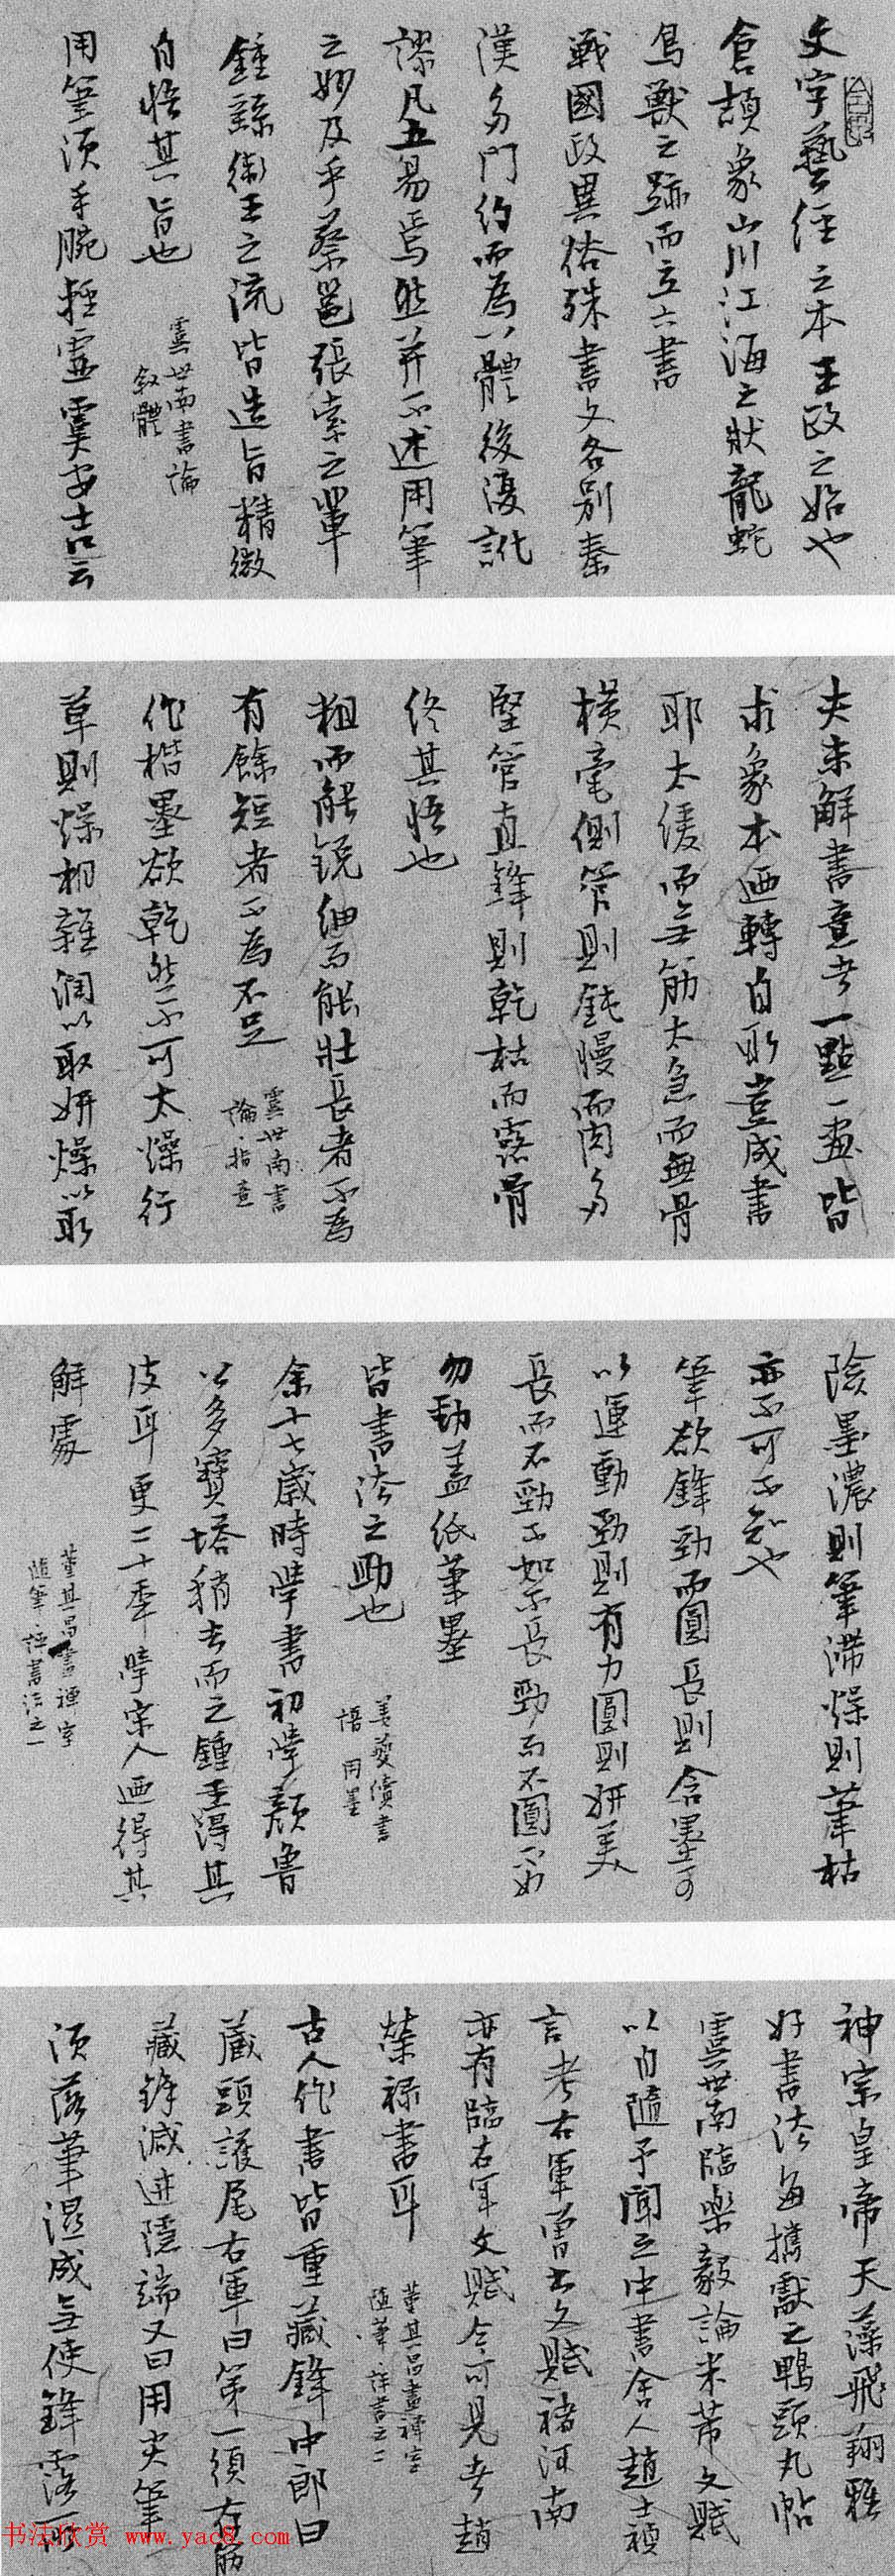 文字藝經之本王政之始也
倉頡象山川江海之狀龍蛇
鳥獸之跡而立六書
戰國政異俗殊書文各別秦
漢多門約而為八體後復訛
謬凡五易焉然並不述用筆
之妙及乎蔡邕張索之輩
鍾繇衛王之流皆造旨精微
自悟其旨也
虞世南書論
敘體
用筆須手腕輕虛虞安吉云
夫未解書意者一點一畫皆
求象本迺轉自取豈成書
耶太緩而無筋太急而無骨
橫毫側管則鈍慢而肉多
豎管直鋒則乾枯而露骨
終其悟也
粗而能銳細而能壯長者不為
有餘短者不為不足
虞世南書
論·指意
作楷墨欲乾然不可太燥行
草則燥相雜潤以取妍燥以取
險墨濃則筆滯燥則筆枯
亦不可不知也
筆欲鋒勁而圓長則含墨可
以運動勁則有力圓則妍美
長而不勁不如不長勁而不圓不如
勿勁蓋紙筆墨
皆書法之助也
姜夔續書
語 用墨
余十七歲時學書初學顏魯
公多寶塔稍去而之鍾王得其
皮耳更二十年學宋人迺得其
解處
董其昌畫禪室
隨筆·評書法之一
神宗皇帝天藻飛翔雅
好書法每攜獻之鴨頭丸帖
虞世南臨樂毅論米芾文賦
以自隨予聞之中書舍人趙士禎
言考右軍曾書文賦褚河南
亦有臨右軍文賦今可見者趙
榮祿書耳
董其昌畫禪室
隨筆·評書之二
古人作書皆重藏鋒中郎曰
藏頭護尾右軍曰第一須存筋
藏鋒滅迹隱端又曰用尖筆
須落筆混成無使鋒露所
书法欣赏 www.yac8.com